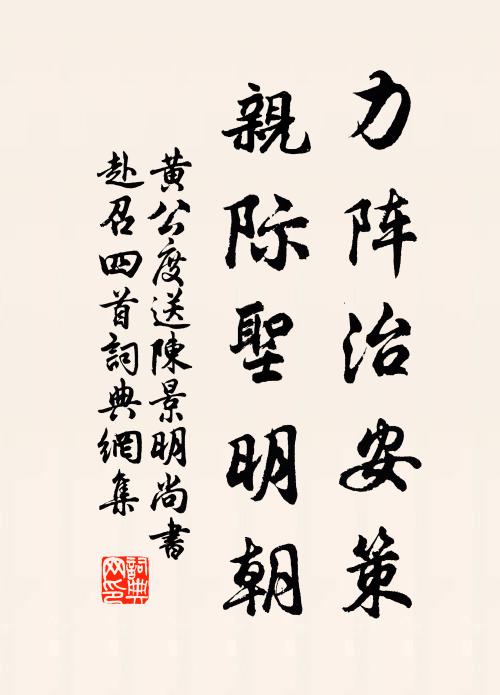 力阵治安策
親际聖明朝
黄公度送陳景明尚書
赴召四首詞典網集
詞典网印